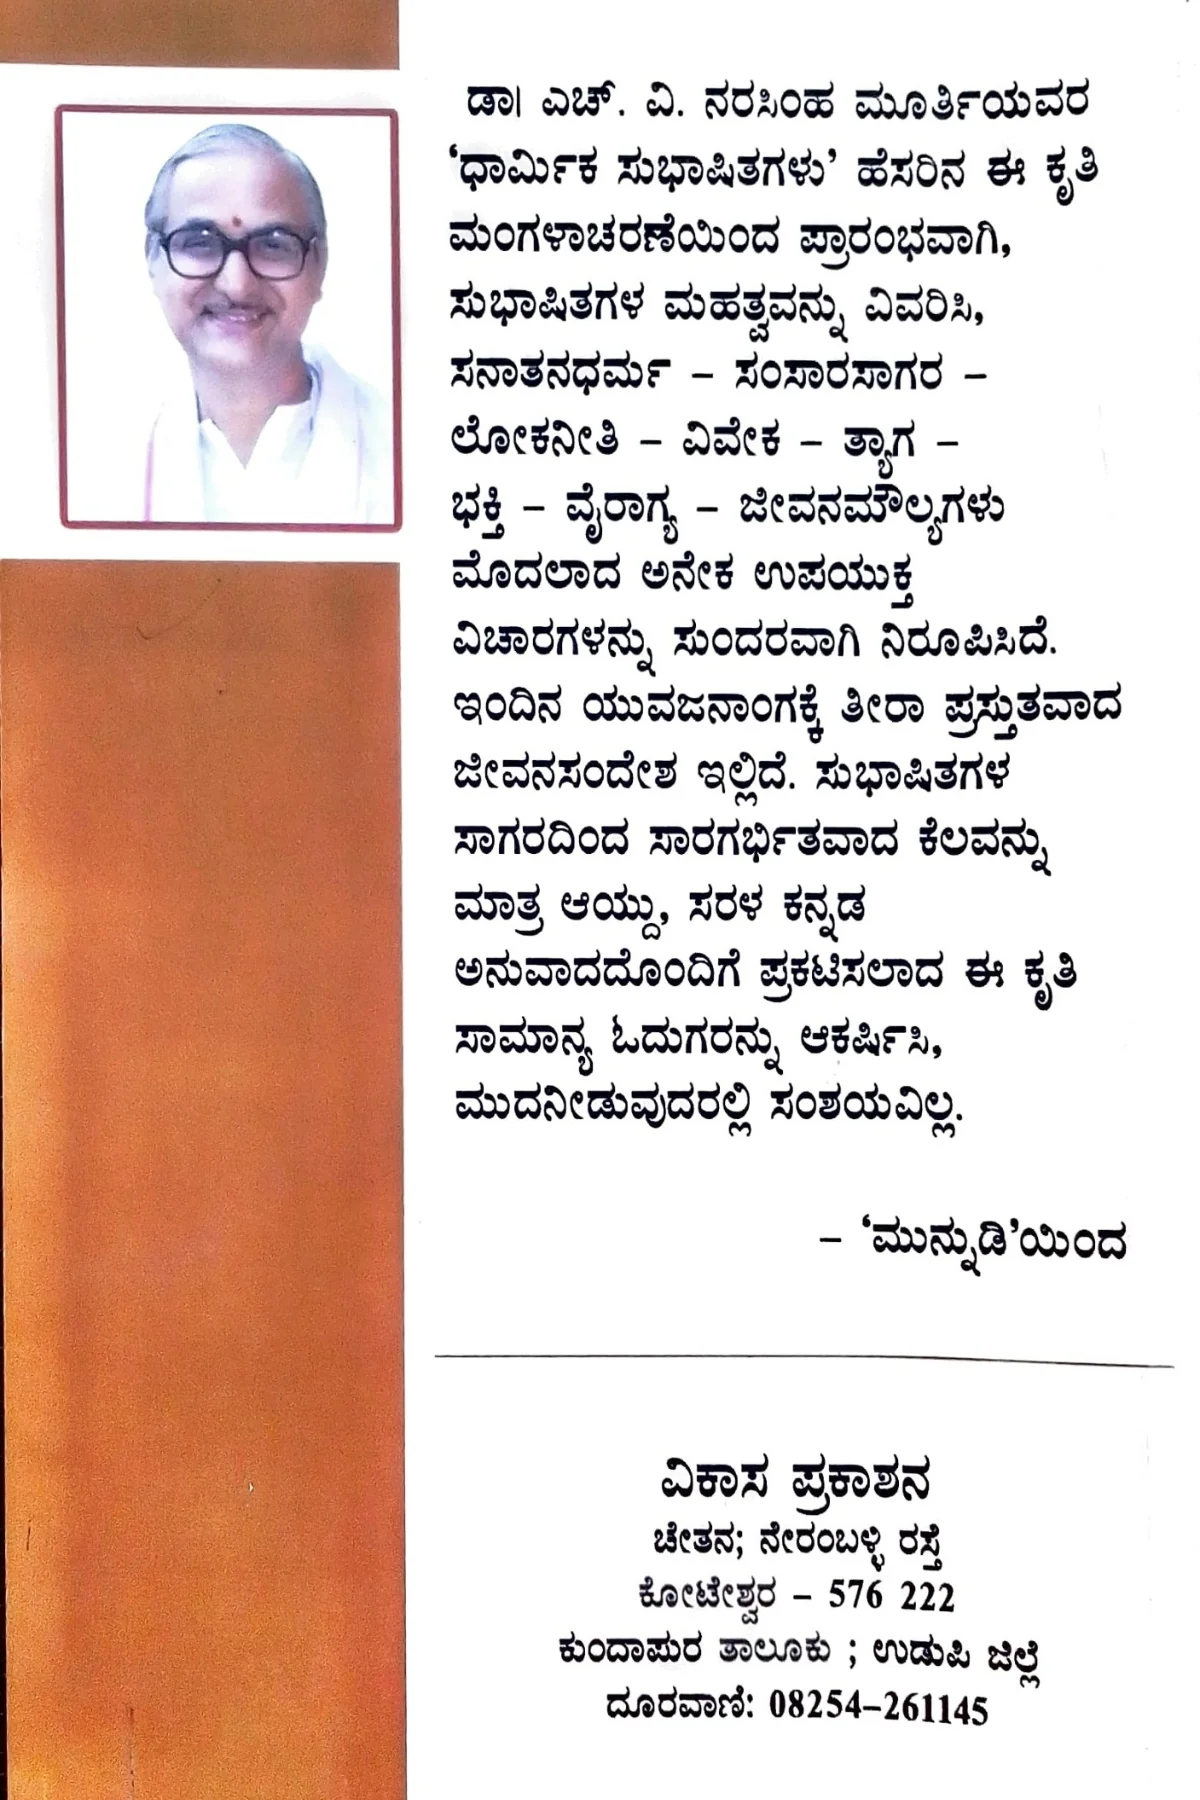 ಡಾ। ಎಚ್. ವಿ. ನರಸಿಂಹ ಮೂರ್ತಿಯವರ
‘ಧಾರ್ಮಿಕ ಸುಭಾಷಿತಗಳು’ ಹೆಸರಿನ ಈ ಕೃತಿ
ಮಂಗಳಾಚರಣೆಯಿಂದ ಪ್ರಾರಂಭವಾಗಿ,
ಸುಭಾಷಿತಗಳ ಮಹತ್ವವನ್ನು ವಿವರಿಸಿ,
ಸನಾತನಧರ್ಮ – ಸಂಸಾರಸಾಗರ –
ಲೋಕನೀತಿ – ವಿವೇಕ – ತ್ಯಾಗ –
ಭಕ್ತಿ – ವೈರಾಗ್ಯ – ಜೀವನಮೌಲ್ಯಗಳು
ಮೊದಲಾದ ಅನೇಕ ಉಪಯುಕ್ತ
ವಿಚಾರಗಳನ್ನು ಸುಂದರವಾಗಿ ನಿರೂಪಿಸಿದೆ.
ಇಂದಿನ ಯುವಜನಾಂಗಕ್ಕೆ ತೀರಾ ಪ್ರಸ್ತುತವಾದ
ಜೀವನಸಂದೇಶ ಇಲ್ಲಿದೆ. ಸುಭಾಷಿತಗಳ
ಸಾಗರದಿಂದ ಸಾರಗರ್ಭಿತವಾದ ಕೆಲವನ್ನು
ಮಾತ್ರ ಆಯ್ದು, ಸರಳ ಕನ್ನಡ
ಅನುವಾದದೊಂದಿಗೆ ಪ್ರಕಟಿಸಲಾದ ಈ ಕೃತಿ
ಸಾಮಾನ್ಯ ಓದುಗರನ್ನು ಆಕರ್ಷಿಸಿ,
ಮುದನೀಡುವುದರಲ್ಲಿ ಸಂಶಯವಿಲ್ಲ.
– ‘ಮುನ್ನುಡಿ’ಯಿಂದ
ವಿಕಾಸ ಪ್ರಕಾಶನ
ಚೇತನ; ನೇರಂಬಳ್ಳಿ ರಸ್ತೆ
ಕೋಟೇಶ್ವರ – 576 222
ಕುಂದಾಪುರ ತಾಲೂಕು ; ಉಡುಪಿ ಜಿಲ್ಲೆ
ದೂರವಾಣಿ: 08254–261145